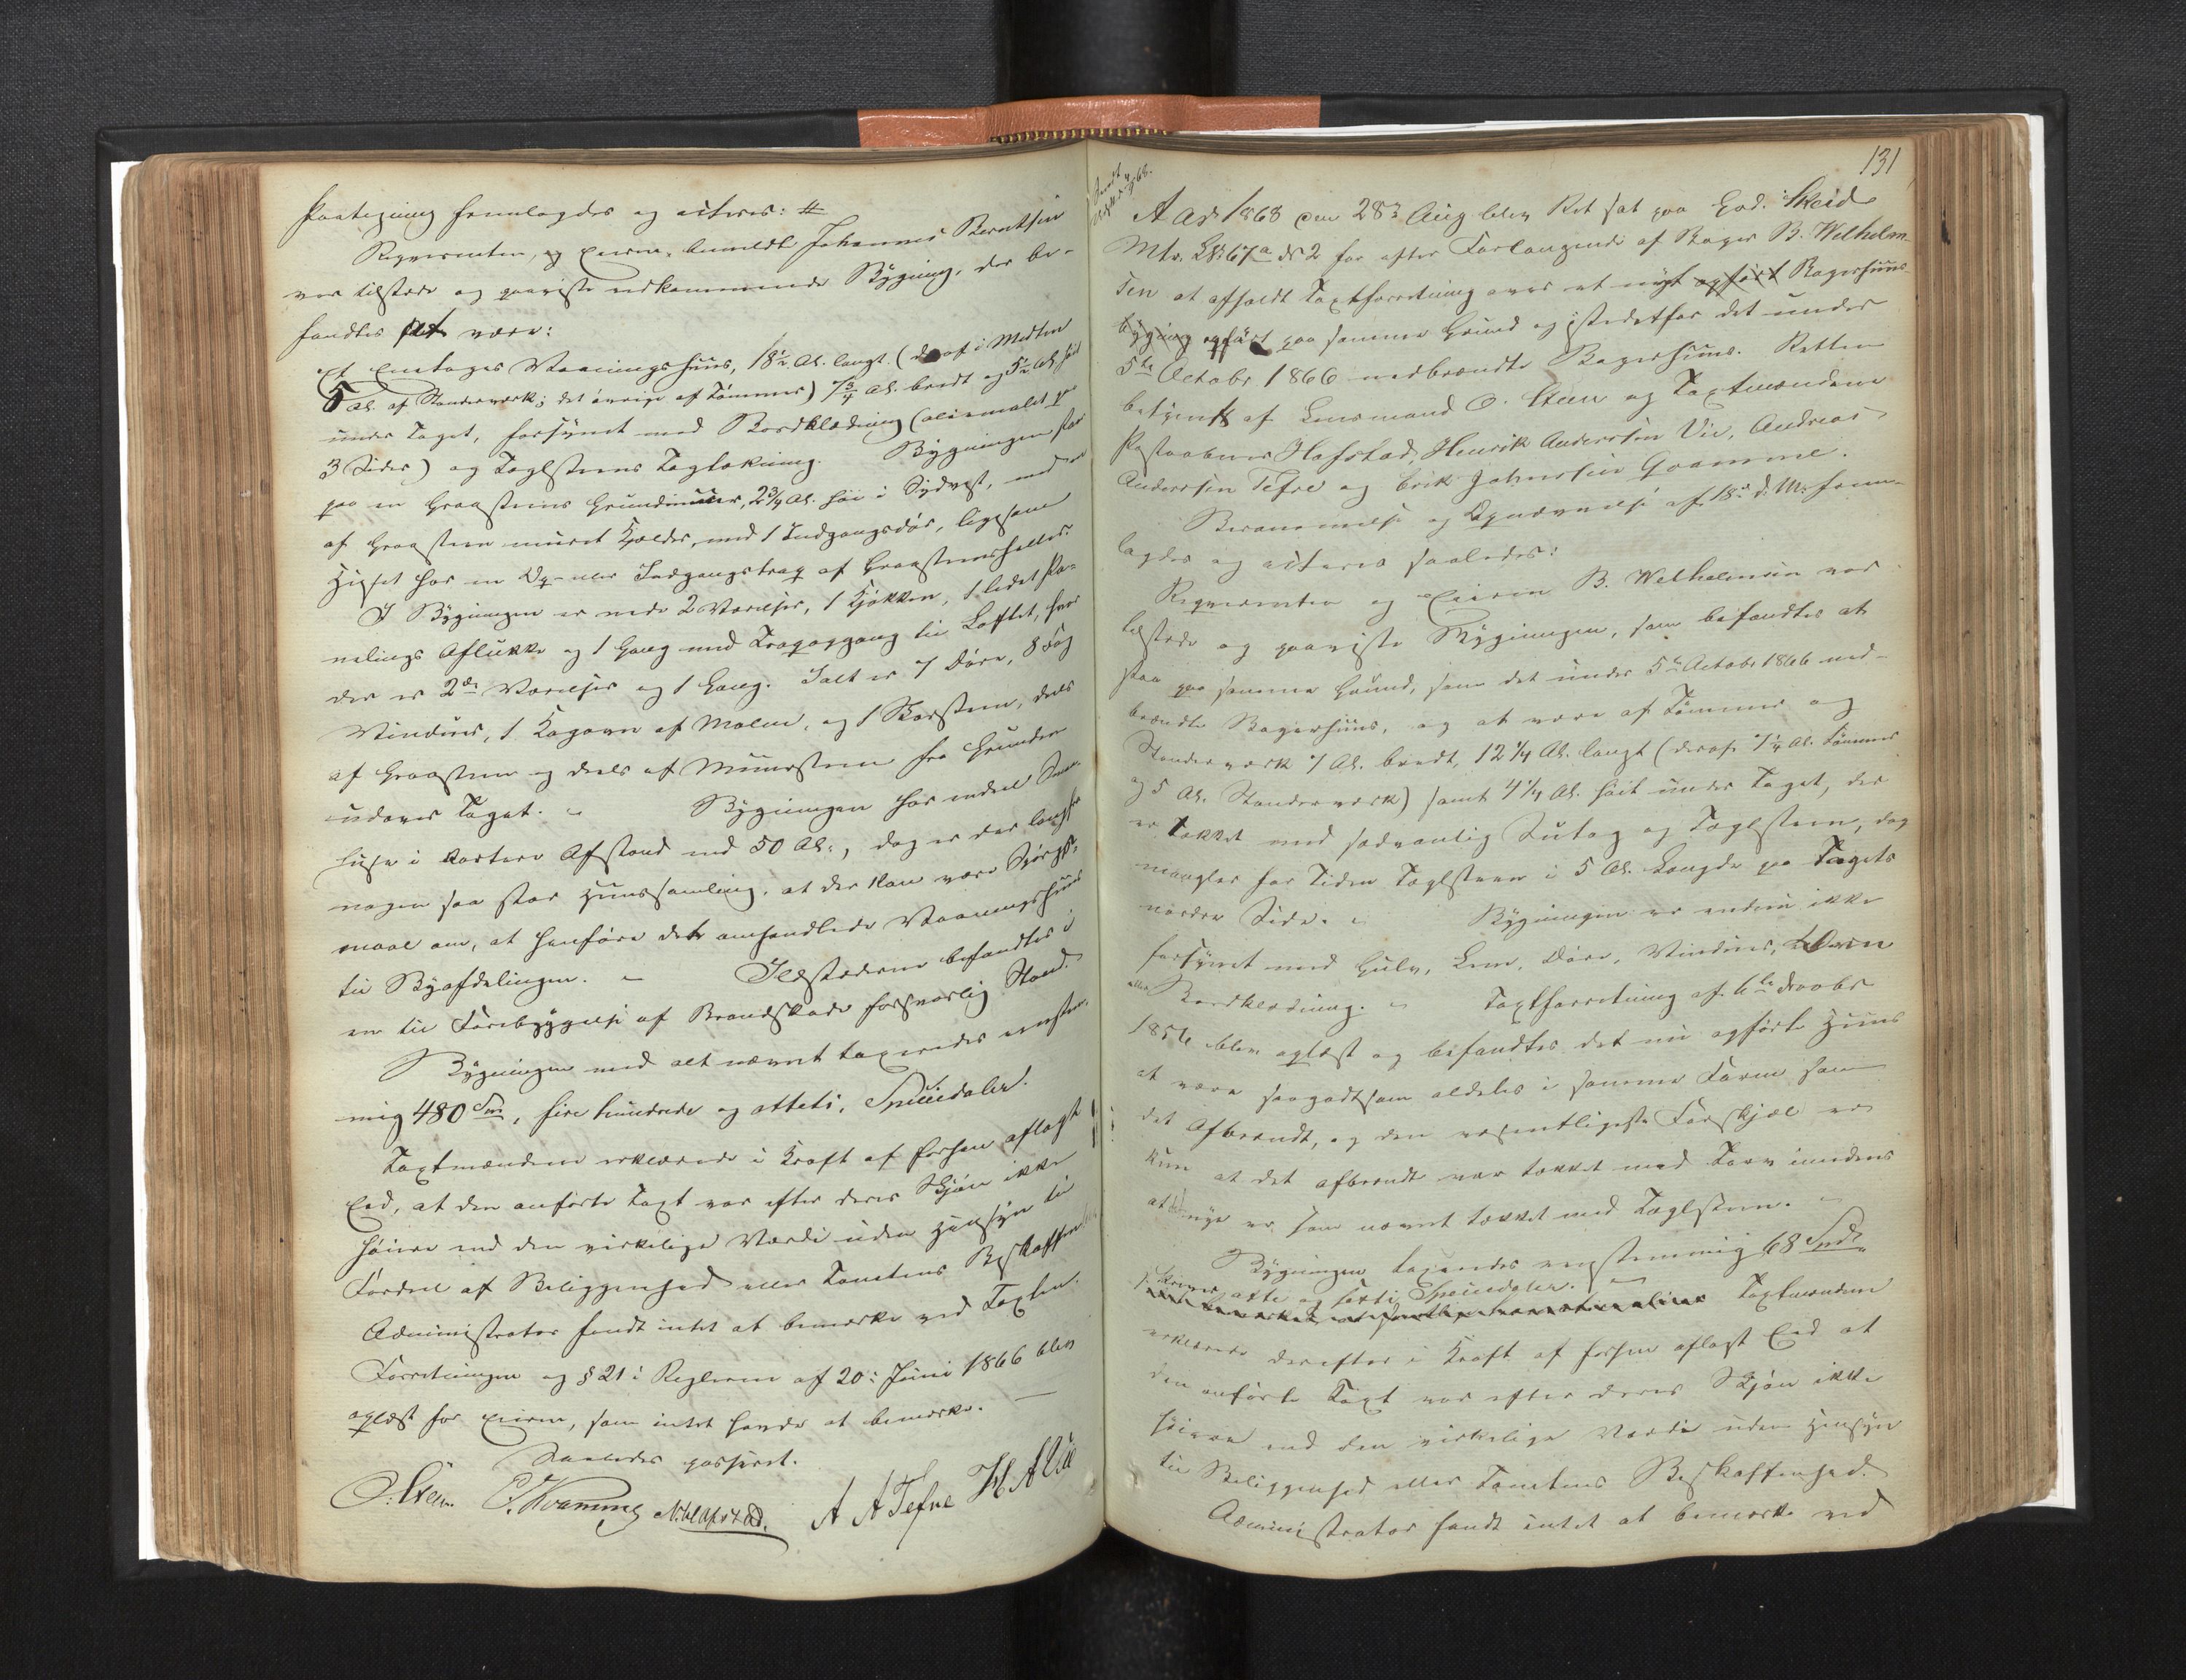 Paategning fremlagdes og acteres: #
Reqvirenten, og Eieren, bemeldte Johannes Berntsen
var tilstede og paaviste vedkommende Bygning, der be-
fandtes at være:
Et Enetages Vaaningshuus, 18½ Al. langt (deraf i Midten
5 Al. af Standerværk; det øvrige af Tømmer) 7¾ Al. bredt og 5½ Al. høit
under Taget, forsynet med Bordklædning (oliemalet paa
3 Sider) og Taglsteens Tagtækning. Bygningen staar
paa en Graasteens Grundmuur, 2¾ Al. høi i Sydvest, med
af Graasteen muret Kjelder, med 1 Indgangsdør, ligesom
Huset har en Indgangstrap af Graasteensheller.
I Bygningen er nede 2 Værelser, 1 Kjøkken, 1 lidet Pa-
nelings Aflukke og 1 Gang med Trapopgang til Loftet, hvor
der er 2de Værelser og 1 Gang. Ialt er 7 Døre, 8 Fag
Vinduer, 1 Kogovn af Malm, og 1 Skorsteen, deels
af Graasteen og deels af Muursteen fra Grunden
udover Taget. – Bygningen har endeel Smaa-
huse i kortere Afstand end 50 Al., dog er der langtfra
nogen saa stor Huussamling, at der kan være Spørgs-
maal om, at henføre det omhandlede Vaaningshuus
til Byafdelingen. – Ildstederne befandtes i
en til Forebyggelse af Brandskade forsvarlig Stand.
Bygningen med alt nævnt taxeredes eenstem-
mig 480 Spd, fire hundrede og otteti, Speciedaler.
Taxtmændene erklærede i Kraft af forhen aflagt
Eed, at den anførte Taxt var efter deres Skjøn ikke
høiere end den virkelige Værdi uden Hensyn til
Fordeel af Beliggenhed eller Tomtens Beskaffenhed.
Administrator fandt intet at bemærke ved Taxten.
Forretningen og § 21 i Regleme af 20: Juni 1866 blev
oplæst for Eieren, som intet havde at bemærke. –
Saaledes passeret.
O. Steen. E. Kvamme N. Hafstad. A A Tefre H. A Vie
131
Aar 1868 den 28de Aug blev Ret sat paa Gd. Skeid
Mtr. L№ 67a № 2 for efter Forlangende af Bager B. Wilhelm-
sen at afholdt Taxtforretning over et nyt opført Bagerhuus-
bygning opført paa samme Grund og istedetfor det under
5te Octobr 1866 nedbrændte Bagerhuus. Retten
betjent af Lensmand O. Steen og Taxtmændene
Postaabner Hafstad, Henrik Anderssen Vie, Andreas
Anderssen Tefre og Erik Johnssen Qvamme.
Berammelse og Opnævnelse af 18de d: M: frem-
lagdes og acteres saaledes:
Reqvirenten og Eieren B. Wilhelmsen var
tilstede og paaviste Bygningen, som befandtes at
staa paa samme Grund, som det under 5te Octobr 1866 ned-
brændte Bagerhuus, og at være af Tømmer og
Standerværk 7 Al. bredt, 12¼ Al. langt (deraf 7¼ Al. Tømmer
og 5 Al. Standerværk) samt 4¼ Al. høit under Taget, der
er tækket med sædvanlig Sutag og Taglsteen, dog
mangler for Tiden Taglsteen i 5 Al. Længde paa Tagets
nordre Side. – Bygningen er endnu ikke
forsynet med Gulv, Lem, Døre, Vinduer, Ovn
eller Bordklædning. – Taxtforretning af 6te
1856 blev oplæst og befandtes det nu opførte Huus
at være saagodtsom aldeles i samme Form som
det Afbrændte, og den væsentligste Forskjæl er
kun at det afbrændte var tækket med Torv imedens
at nye er som nævnt tækket med Taglsteen. –
Bygningen taxeredes eenstemmig 68 Spd
skriver otte og sexti Speciedaler. – Taxtmændene
erklærede derefter i Kraft af forhen aflagt Eed at
den anførte Taxt var efter deres Skjøn ikke
høiere end den virkelige Værdi uden Hensyn
til Beliggenhed eller Tomtens Beskaffenhed.
Administrator fandt intet at bemærke ved